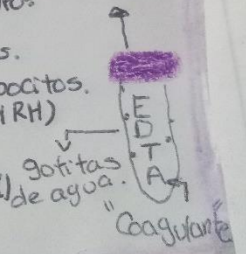 s.
ocitos.
iRH)
E
D
T
A
gotitas
de agua.
"Coagulante"